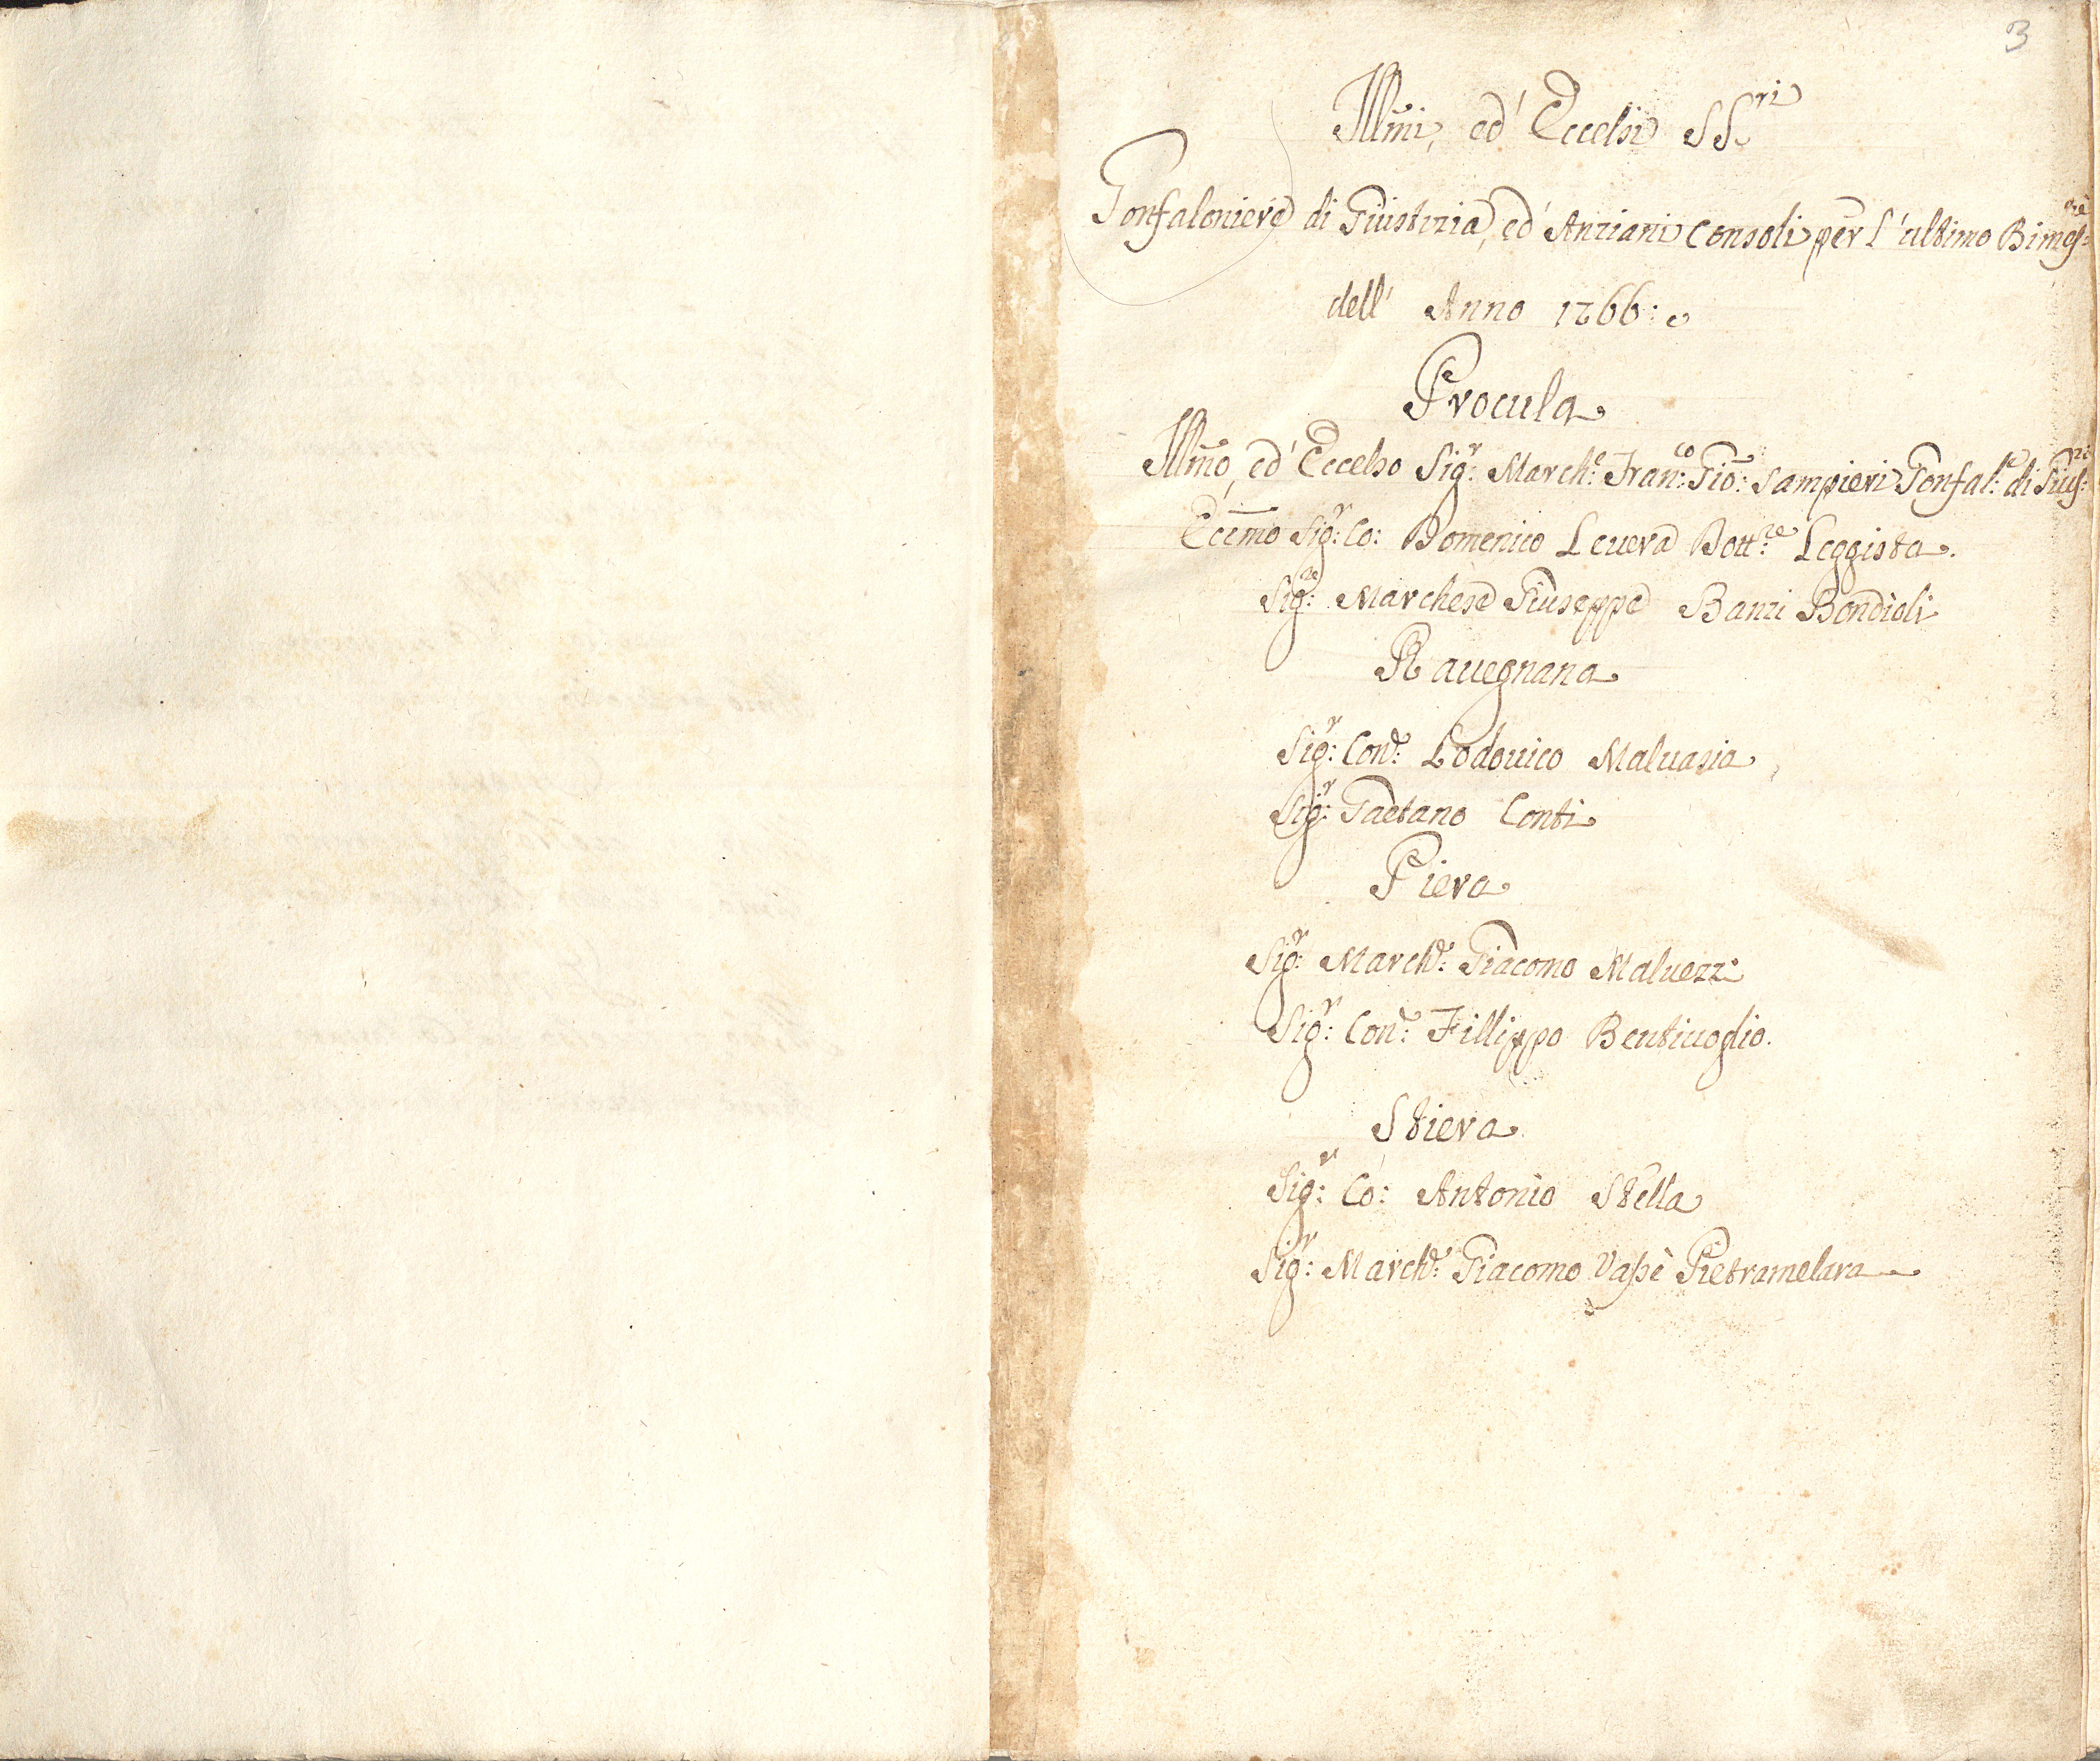 3
Illm̃i, ed' Eccelsi SS.ri
Gonfaloniere di Giustizia, ed' Anziani Consoli per l'ultimo Bimes:re
dell' Anno 1766:
Procula
Illm̃o, ed' Eccelso Sig:r March:e Fran:co Gio: Sampieri Gonfal:e di Gius:zia
Eccm̃o Sig:r Co: Domenico Levera Dott:re Leggista.
Sig:re Marchese Giuseppe Banzi Bondioli
Ravegnana
Sig:r Con:e Lodovico Malvasia
Sig:r Gaetano Conti
Piera
Sig:r March:e Giacomo Malvezzi
Sig:r Con:e Fillippo Bentivoglio.
Stiera
Sig:r Co: Antonio Stella
Sig:r March:e Giacomo Vassè Pietramelara